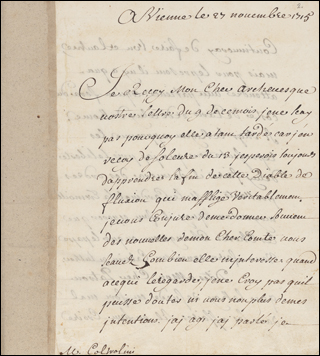 A Vienne le 27 novembre 1715
Je Reçoy Mon Cher Archeuesque
vottre Lettre du 9 de ce mois, je ne scay
pas pourquoy elle a tant tardé car jen
reçois de Soleure du 13 jesperois toujours
d'apprendre la fin de cette Diable de
fluxion qui maflige veritablement,
je vous Conjure de me donner souuent
des nouvelles de mon Cher Comte vous
scauez Combien elle m'interesse, quand
a ce qui le regarde, je ne Croy pas quil
puisse douter ni vous non plus de mes
intentions, jai agi, jai parlé, je
Mr